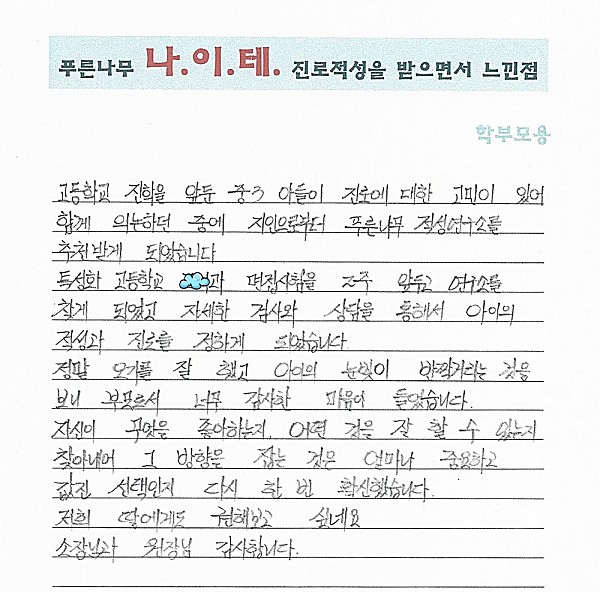 푸른나무 나.이.테. 진로적성을 받으면서 느낀점
학부모용
고등학교 진학을 앞둔 중3 아들이 진로에 대한 고민이 있어
함께 의논하던 중에 지인으로부터 푸른나무 적성연구소를
추천받게 되었습니다
특성화 고등학교 과 면접시험을 2주 앞두고 연구소를
찾게 되었고 자세한 검사와 상담을 통해서 아이의
적성과 진로를 정하게 되었습니다
정말 오기를 잘 했고 아이의 눈빛이 반짝거리는 것을
보니 부모로서 너무 감사한 마음이 들었습니다.
자신이 무엇을 좋아하는지, 어떤 것을 잘 할 수 있는지
찾아내어 그 방향을 잡는 것은 얼마나 중요하고
값진 선택인지 다시 한 번 확신했습니다.
저희 딸에게도 권해보고 싶네요
소장님과 원장님 감사합니다.